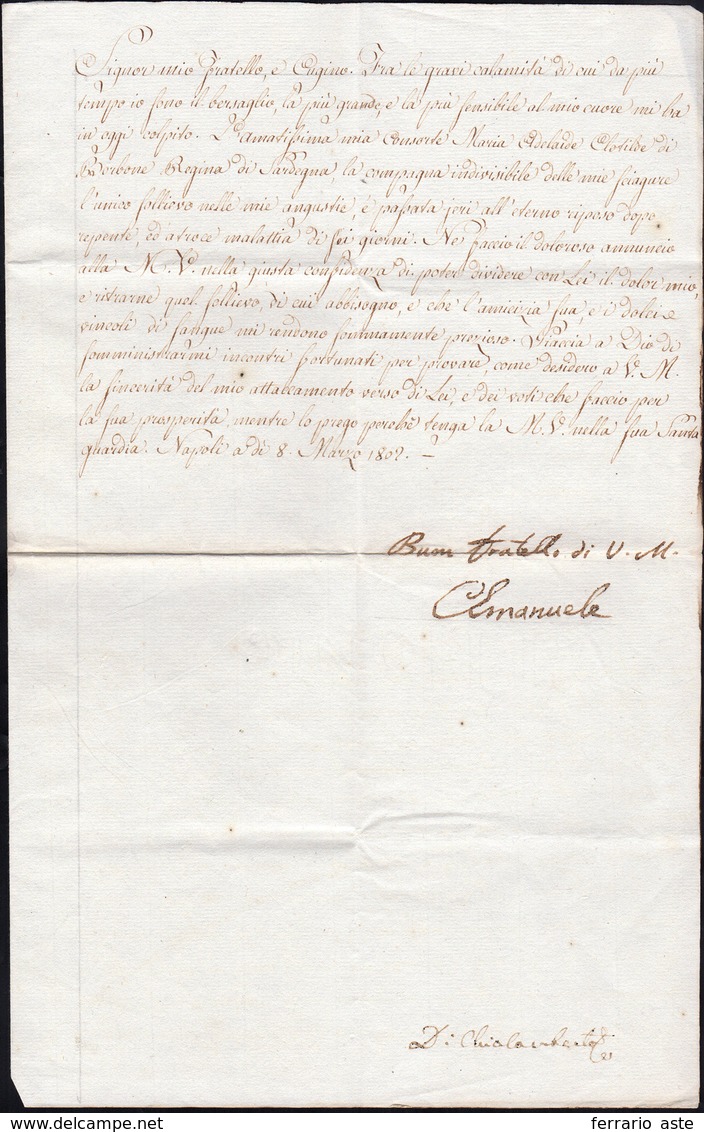 Signor mio Fratello, e Cugino. Fra le gravi calamità di cui da più
tempo io sono il bersaglio, la più grande, e la più sensibile al mio cuore mi ha
in oggi colpito. L'amatissima mia Consorte Maria Adelaide Clotilde di
Borbone Regina di Sardegna, la compagna indivisibile delle mie sciagure
l'unico sollievo nelle mie angustie, è passata jeri all'eterno riposo dopo
repente, ed atroce malattia di sei giorni. Ne faccio il doloroso annuncio
alla M. V. nella giusta confidenza di poter dividere con Lei il dolor mio,
e ritrarne quel sollievo, di cui abbisogno, e che l'amicizia sua, e i dolci
vincoli di sangue mi rendono sommamente prezioso. Piaccia a Dio di
somministrarmi incontri fortunati per provare, come desidero a V. M.
la sincerità del mio attaccamento verso di Lei, e dei voti che faccio per
la sua prosperità, mentre lo prego perchè tenga la M. V. nella sua Santa
guardia. Napoli a dì 8. Marzo 1802. —
Buon fratello di V. M.
CEmanuele
ferrario aste